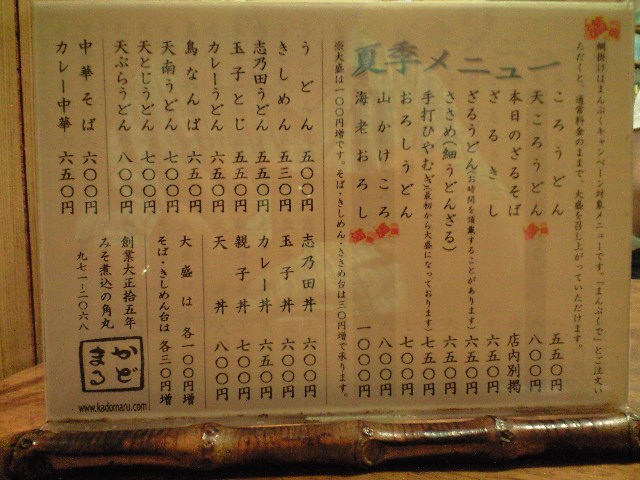 網掛けはまんぷくキャンペーン対象メニューです。『まんぷくで』とご注文い
ただくと、通常料金のままで、大盛を召し上がっていただけます。
夏季メニュー
ころうどん 五五〇円
天ころうどん 八〇〇円
本日のざるそば 店内別掲
ざるきし 六五〇円
ざるうどん(お時間を頂戴することがあります) 六五〇円
ささめ(細うどんざる) 六五〇円
手打ひやむぎ(最初から大盛になっております) 七五〇円
おろしうどん 七〇〇円
山かけころ 八〇〇円
海老おろし 一〇〇〇円
※大盛は一〇〇円増です。そば・きしめん・ささめ台は三〇円増で承ります。
うどん 五〇〇円
きしめん 五三〇円
志乃田うどん 五五〇円
玉子とじ 五五〇円
カレーうどん 六五〇円
鳥なんば 六五〇円
天南うどん 七〇〇円
天とじうどん 七〇〇円
天ぷらうどん 八〇〇円
中華そば 六〇〇円
カレー中華 六五〇円
志乃田丼 六〇〇円
玉子丼 六〇〇円
カレー丼 六五〇円
親子丼 七〇〇円
天丼 八〇〇円
大盛は 各一〇〇円増
そば・きしめん台は 各三〇円増
創業大正拾五年
みそ煮込の角丸
九七一-二〇六八
かどまる
www.kadomaru.com